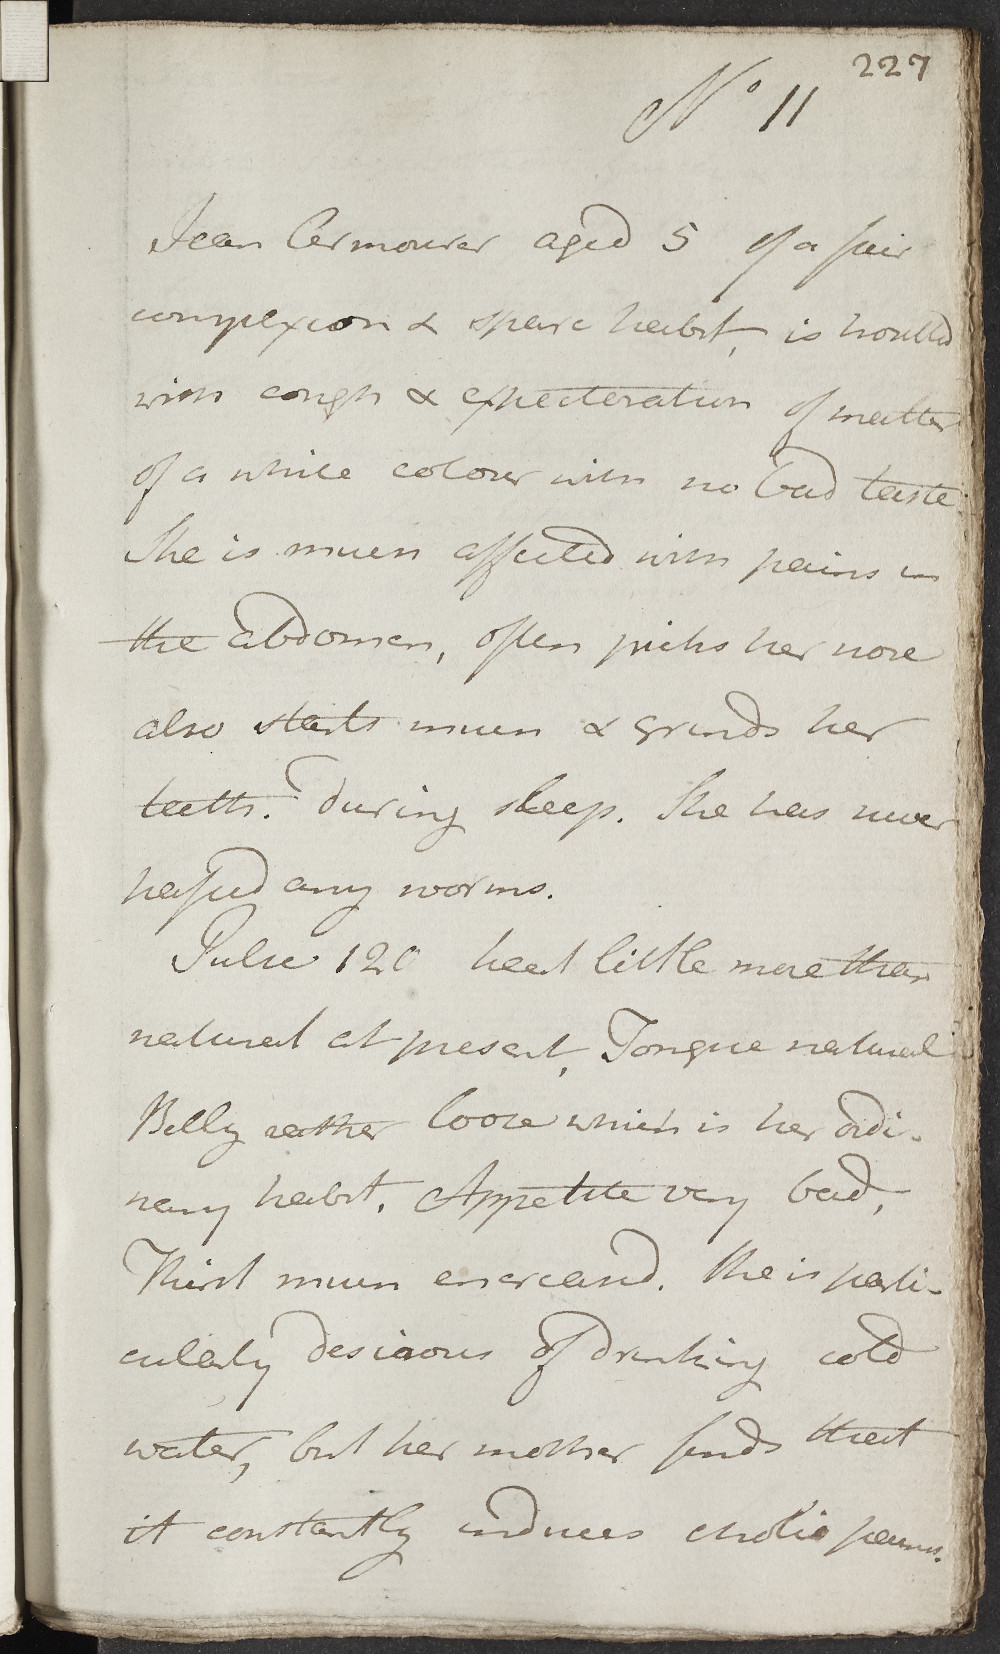 227
No 11
Jean aged 5 of a fair
complexion & spare habit, is troubled
with cough & expectoration of matter
of a white colour with no bad taste.
She is much affected with pains in
the abdomen, often picks her nose
also starts much & grinds her
teeth. during sleep. She has never
passed any worms.
Pulse 120 heat little more than
natural at present, Tongue natural
Belly rather loose which is her ordi-
nary habit. Appetite very bad,
Thirst much encreased. She is parti-
cularly desirous of drinking cold
water, but her mother finds that
it constantly induces cholic pains.